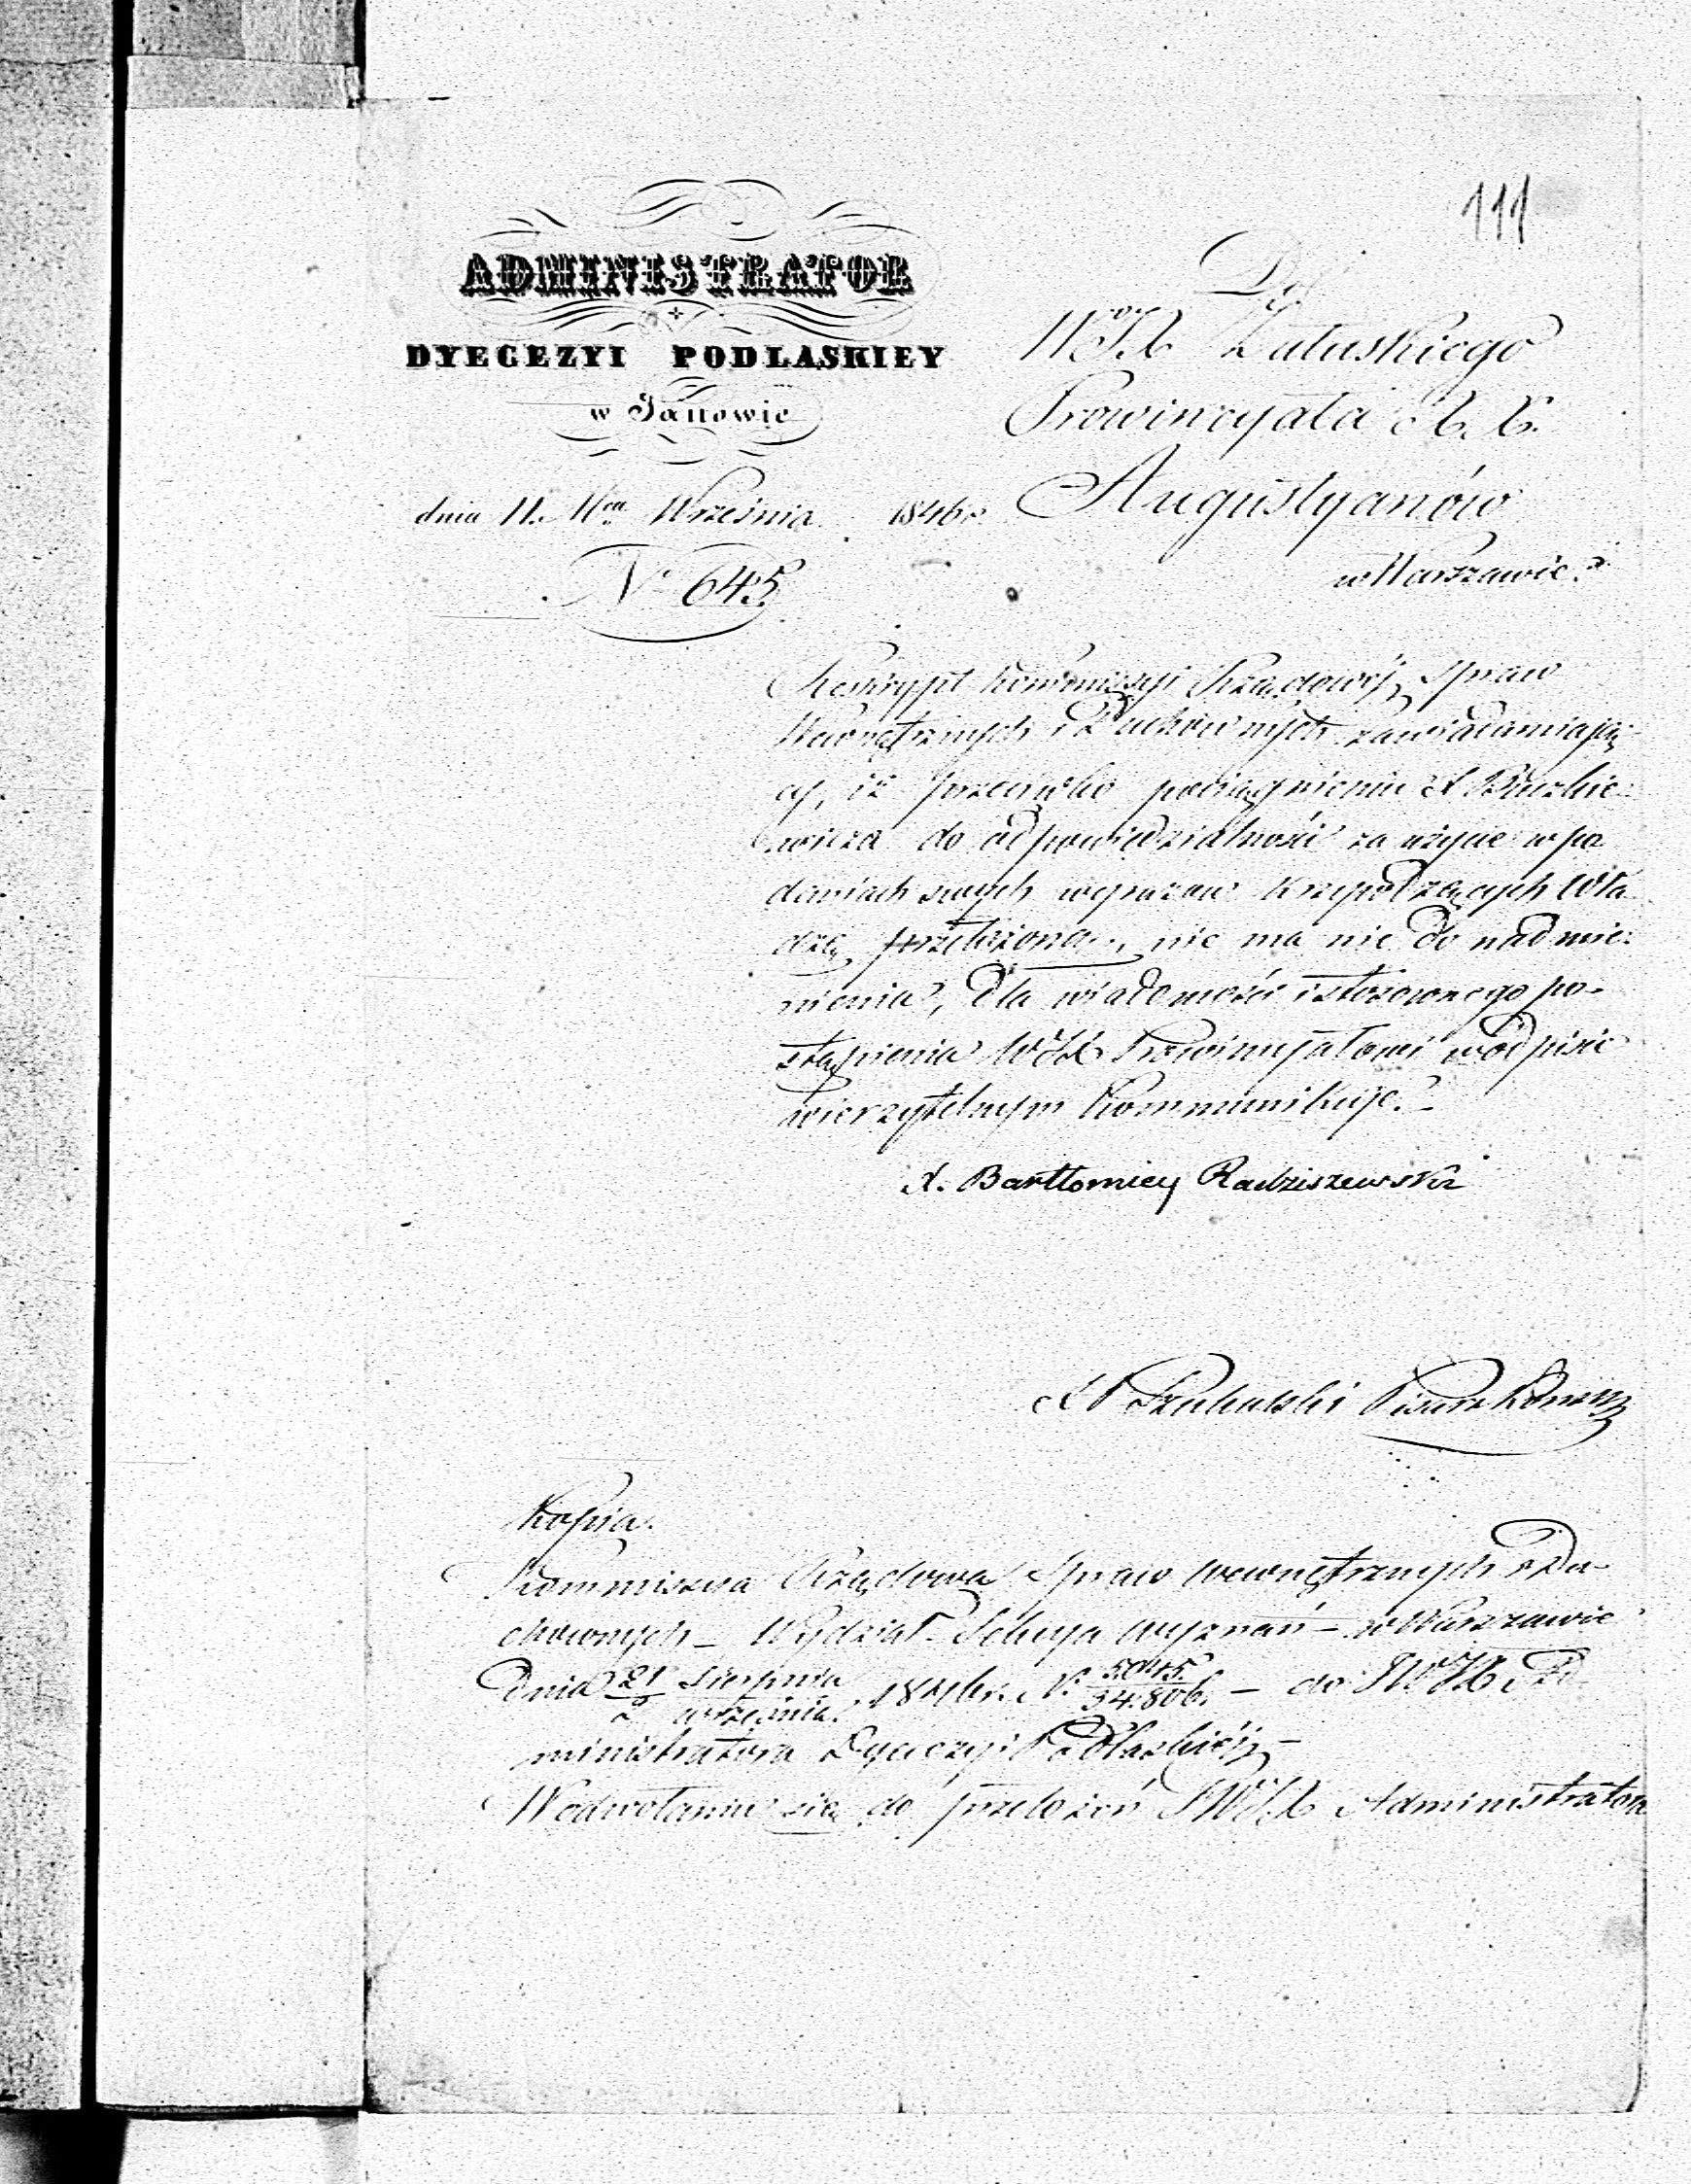 111
ADMINISTRATOR
DYECEZYI PODLASKIEY
w Janowie
dnia 11. Mca Września 1846 r.
N° 645.
Do
WoJX Załuskiego
Prowincyała XX.
Augustyanów
w Warszawie.
Reskrypt Kommissyi Rządowéj Spraw
Wewnętrznych i Duchownych zawiadamiają-
cy, iż przeciwko pociągnieniu X
wicza do odpowiedzialności za użycie w po
daniach swych wyrazów krzywdzących Wła
dzę przełożoną, nic ma nic do nadmie-
nienia, dla wiadomości i stosownego po-
stąpienia WJX Prowincyałowi w odpisie
wierzytelnym kommunikuje.
X. Bartłomiey Radziszewski
X Pisarz
Kopia.
Kommissya Rządowa Spraw Wewnętrznych i Du-
chownych – Wydział – Sekcya Wyznań – w Warszawie
Dnia 21 Sierpnia / 2 Września 1846 r. N. 5045/34.806. – do JWJX Ad-
ministratora Dyecezyi Podlaskiéj –
W odwołaniu się do przełożeń JWJX Administratora